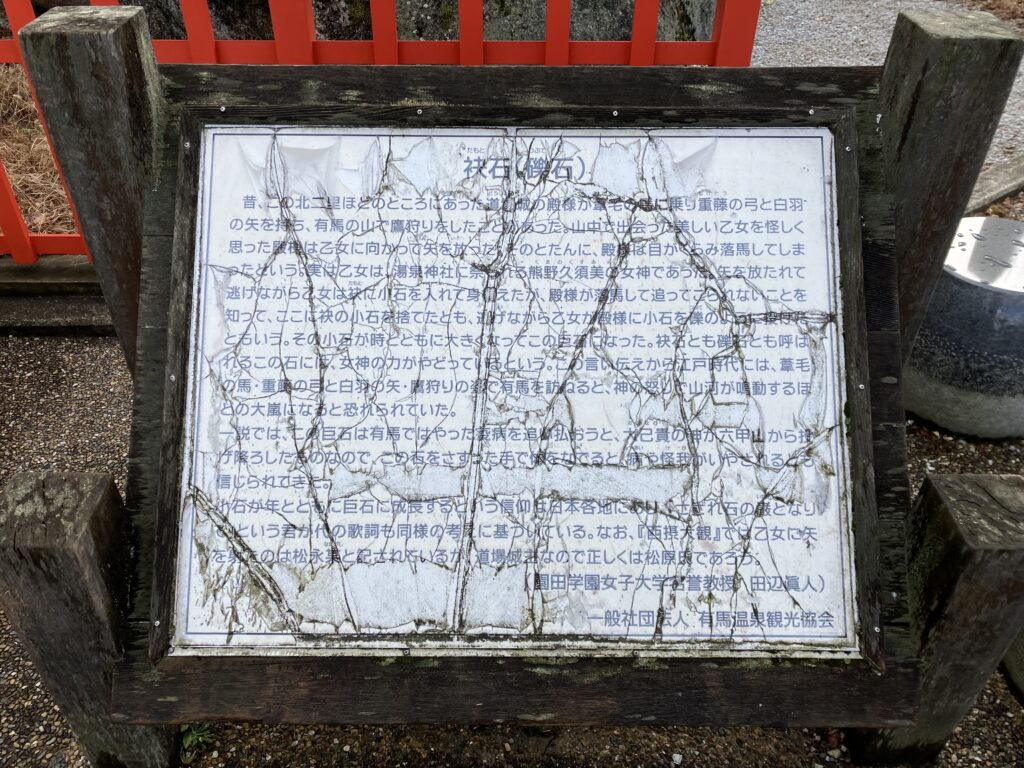 たもと つぶて
袂石(礫石)
昔、この北二里ほどのところにあった道場城の殿様が葦毛の馬に乗り重藤の弓と白羽
の矢を持ち、有馬の山で鷹狩りをしたことがあった。山中で出会った美しい乙女を怪しく
思った殿様は乙女に向かって矢を放った。そのとたんに、殿様は目がくらみ落馬してしま
ったという。実は乙女は、湯泉神社に祭られる熊野久須美の女神であった。矢を放たれて
逃げながら乙女は袂に小石を入れて身構えたが、殿様が落馬して追ってこられないことを
知って、ここに袂の小石を捨てたとも、逃げながら乙女が殿様に小石を礫の
ともいう。その小石が時とともに大きくなってこの巨石になった。袂石とも礫石とも呼ば
れるこの石には、女神の力がやどっているという。この言い伝えから江戸時代には、葦毛
の馬・重藤の弓と白羽の矢・鷹狩りの姿で有馬を訪ねると、神の怒りで山河が鳴動するほ
どの大嵐になると恐れられていた。
一説では、この巨石は有馬ではやった悪病を追い払おうと、大己貴の神が六甲山から投
げ降ろしたものなので、この石をさすった手で体をなでると、病や怪我がいやされるとも
信じられてきた。
小石が年とともに巨石に成長するという信仰は日本各地にあり、「さざれ石の巌となり
て」という君が代の歌詞も同様の考えに基づいている。なお、『西摂大観』では乙女に矢
を射たのは松永某と記されているが、道場城主なので正しくは松原氏であろう。
(園田学園女子大学名誉教授 田辺眞人)
一般社団法人 有馬温泉観光協会